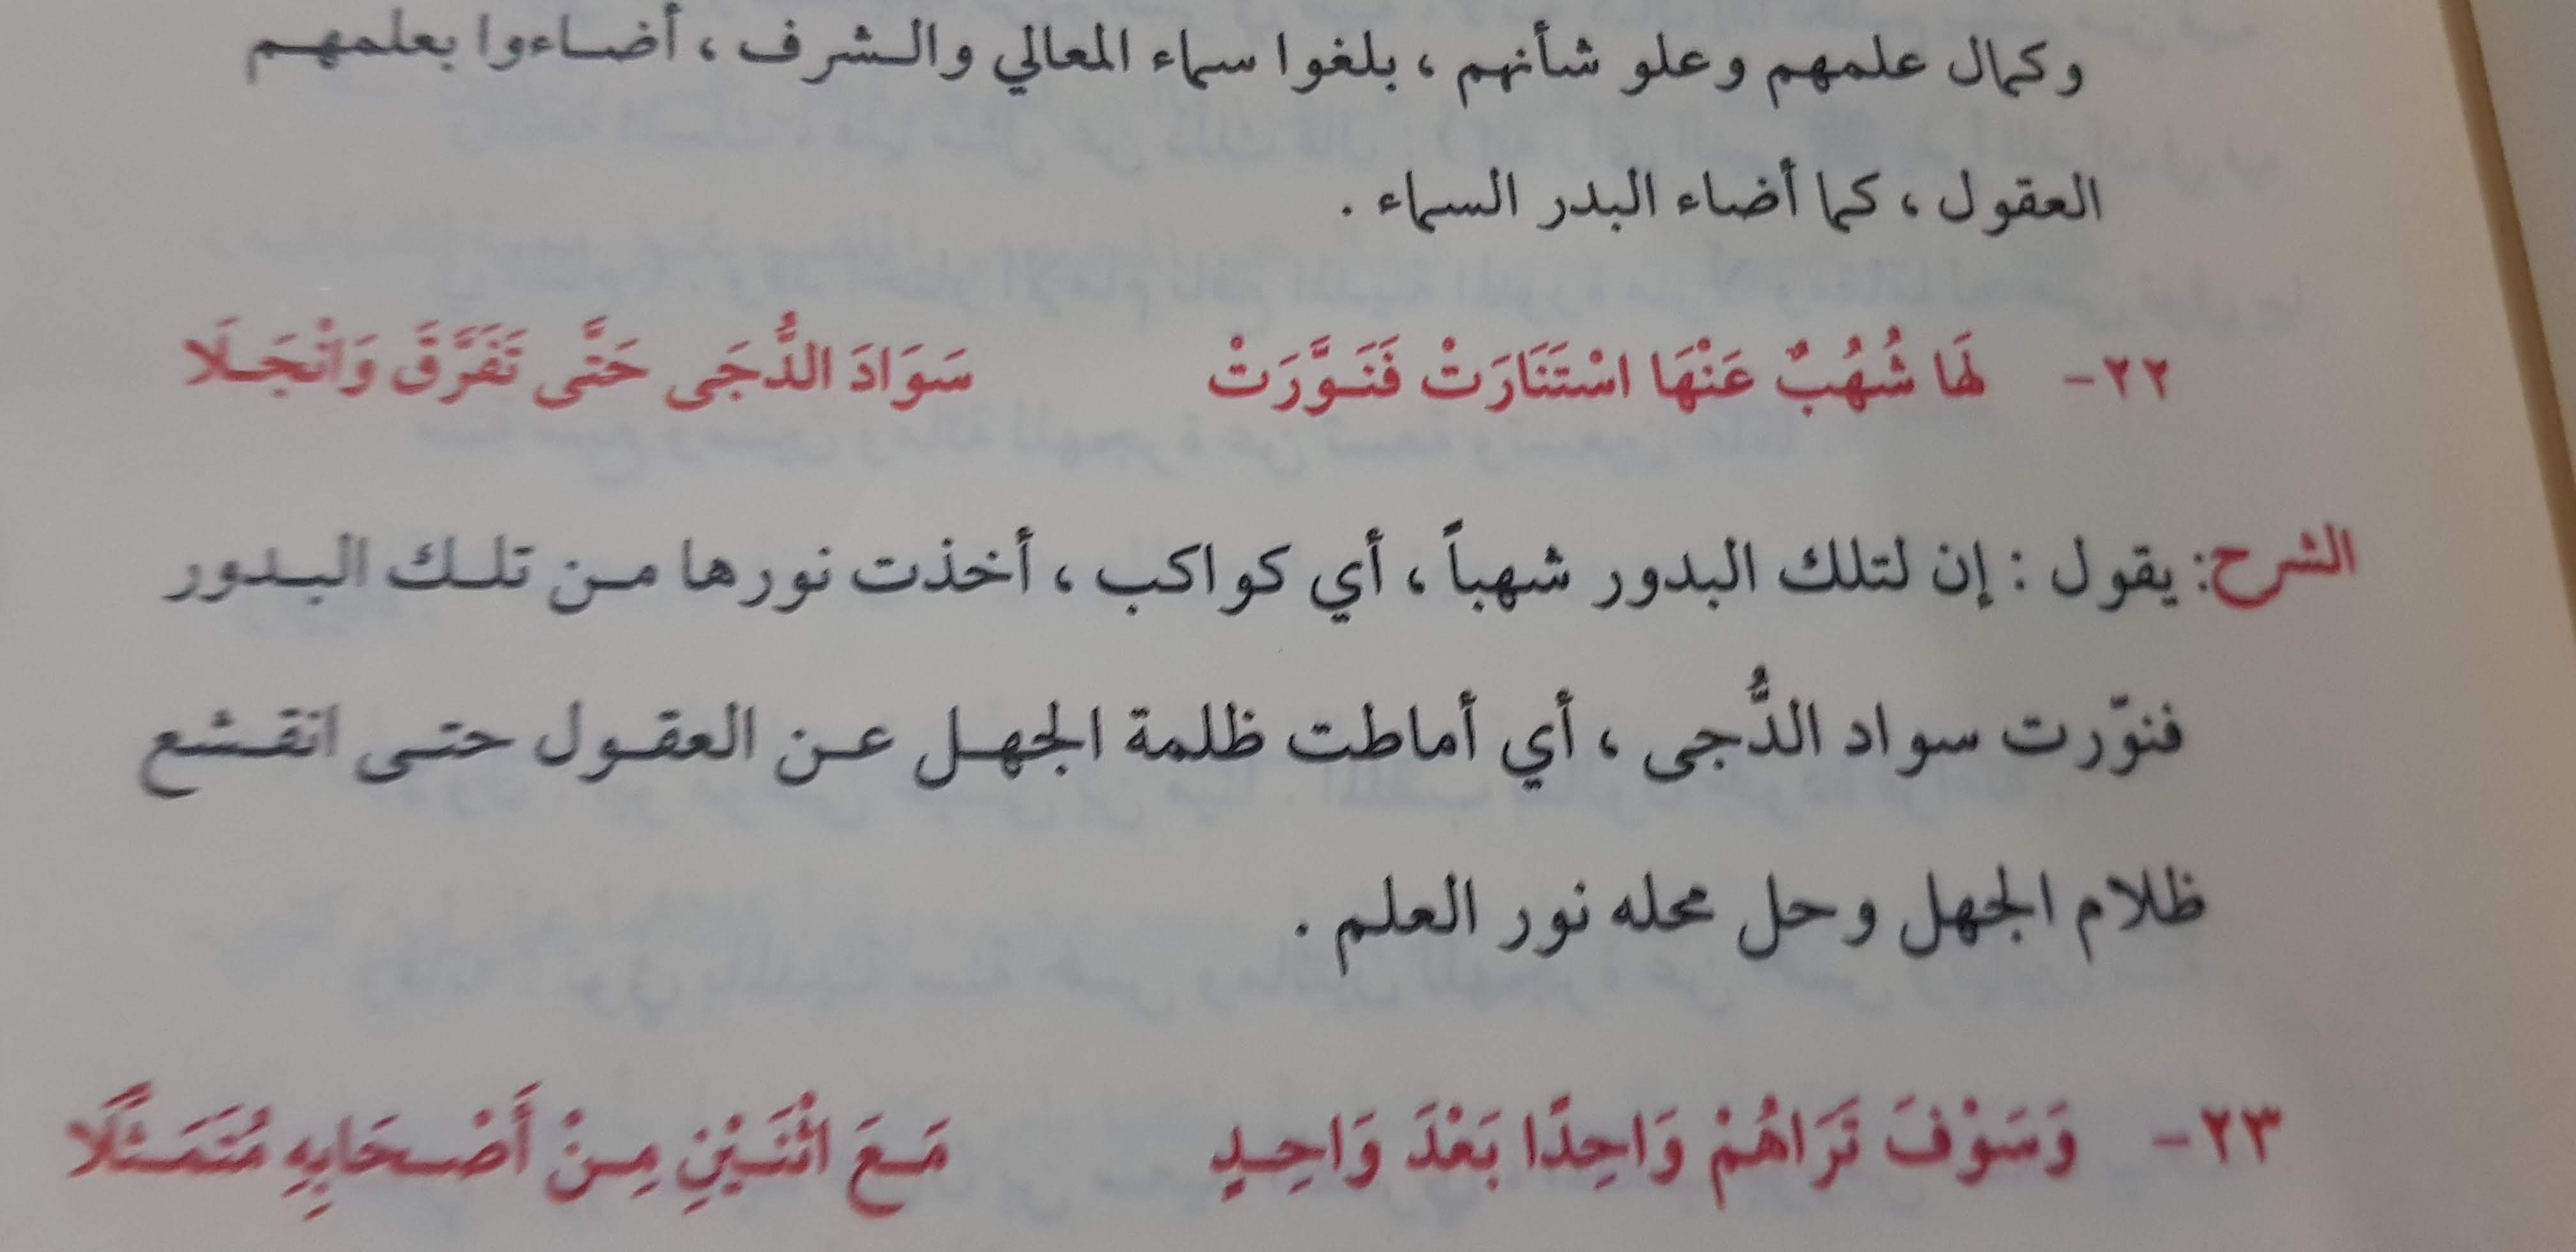 وكمال علمهم وعلو شأنهم ، بلغوا سماء المعالي والشرف ، أضاءوا بعلمهم
العقول ، كما أضاء البدر السماء .
٢٢- لَهَا شُهُبٌ عَنْهَا اسْتَنَارَتْ فَنَوَّرَتْ سَوَادَ الدُّجَى حَتَّى تَفَرَّقَ وَانْجَلَا
الشرح: يقول : إن لتلك البدور شهباً ، أي كواكب ، أخذت نورها من تلك البدور
فنوّرت سواد الدُّجى ، أي أماطت ظلمة الجهل عن العقول حتى انقشع
ظلام الجهل وحل محله نور العلم .
٢٣- وَسَوْفَ تَرَاهُمْ وَاحِدًا بَعْدَ وَاحِدٍ مَعَ اثْنَيْنِ مِنْ أَصْحَابِهِ مُتَمَثِّلًا